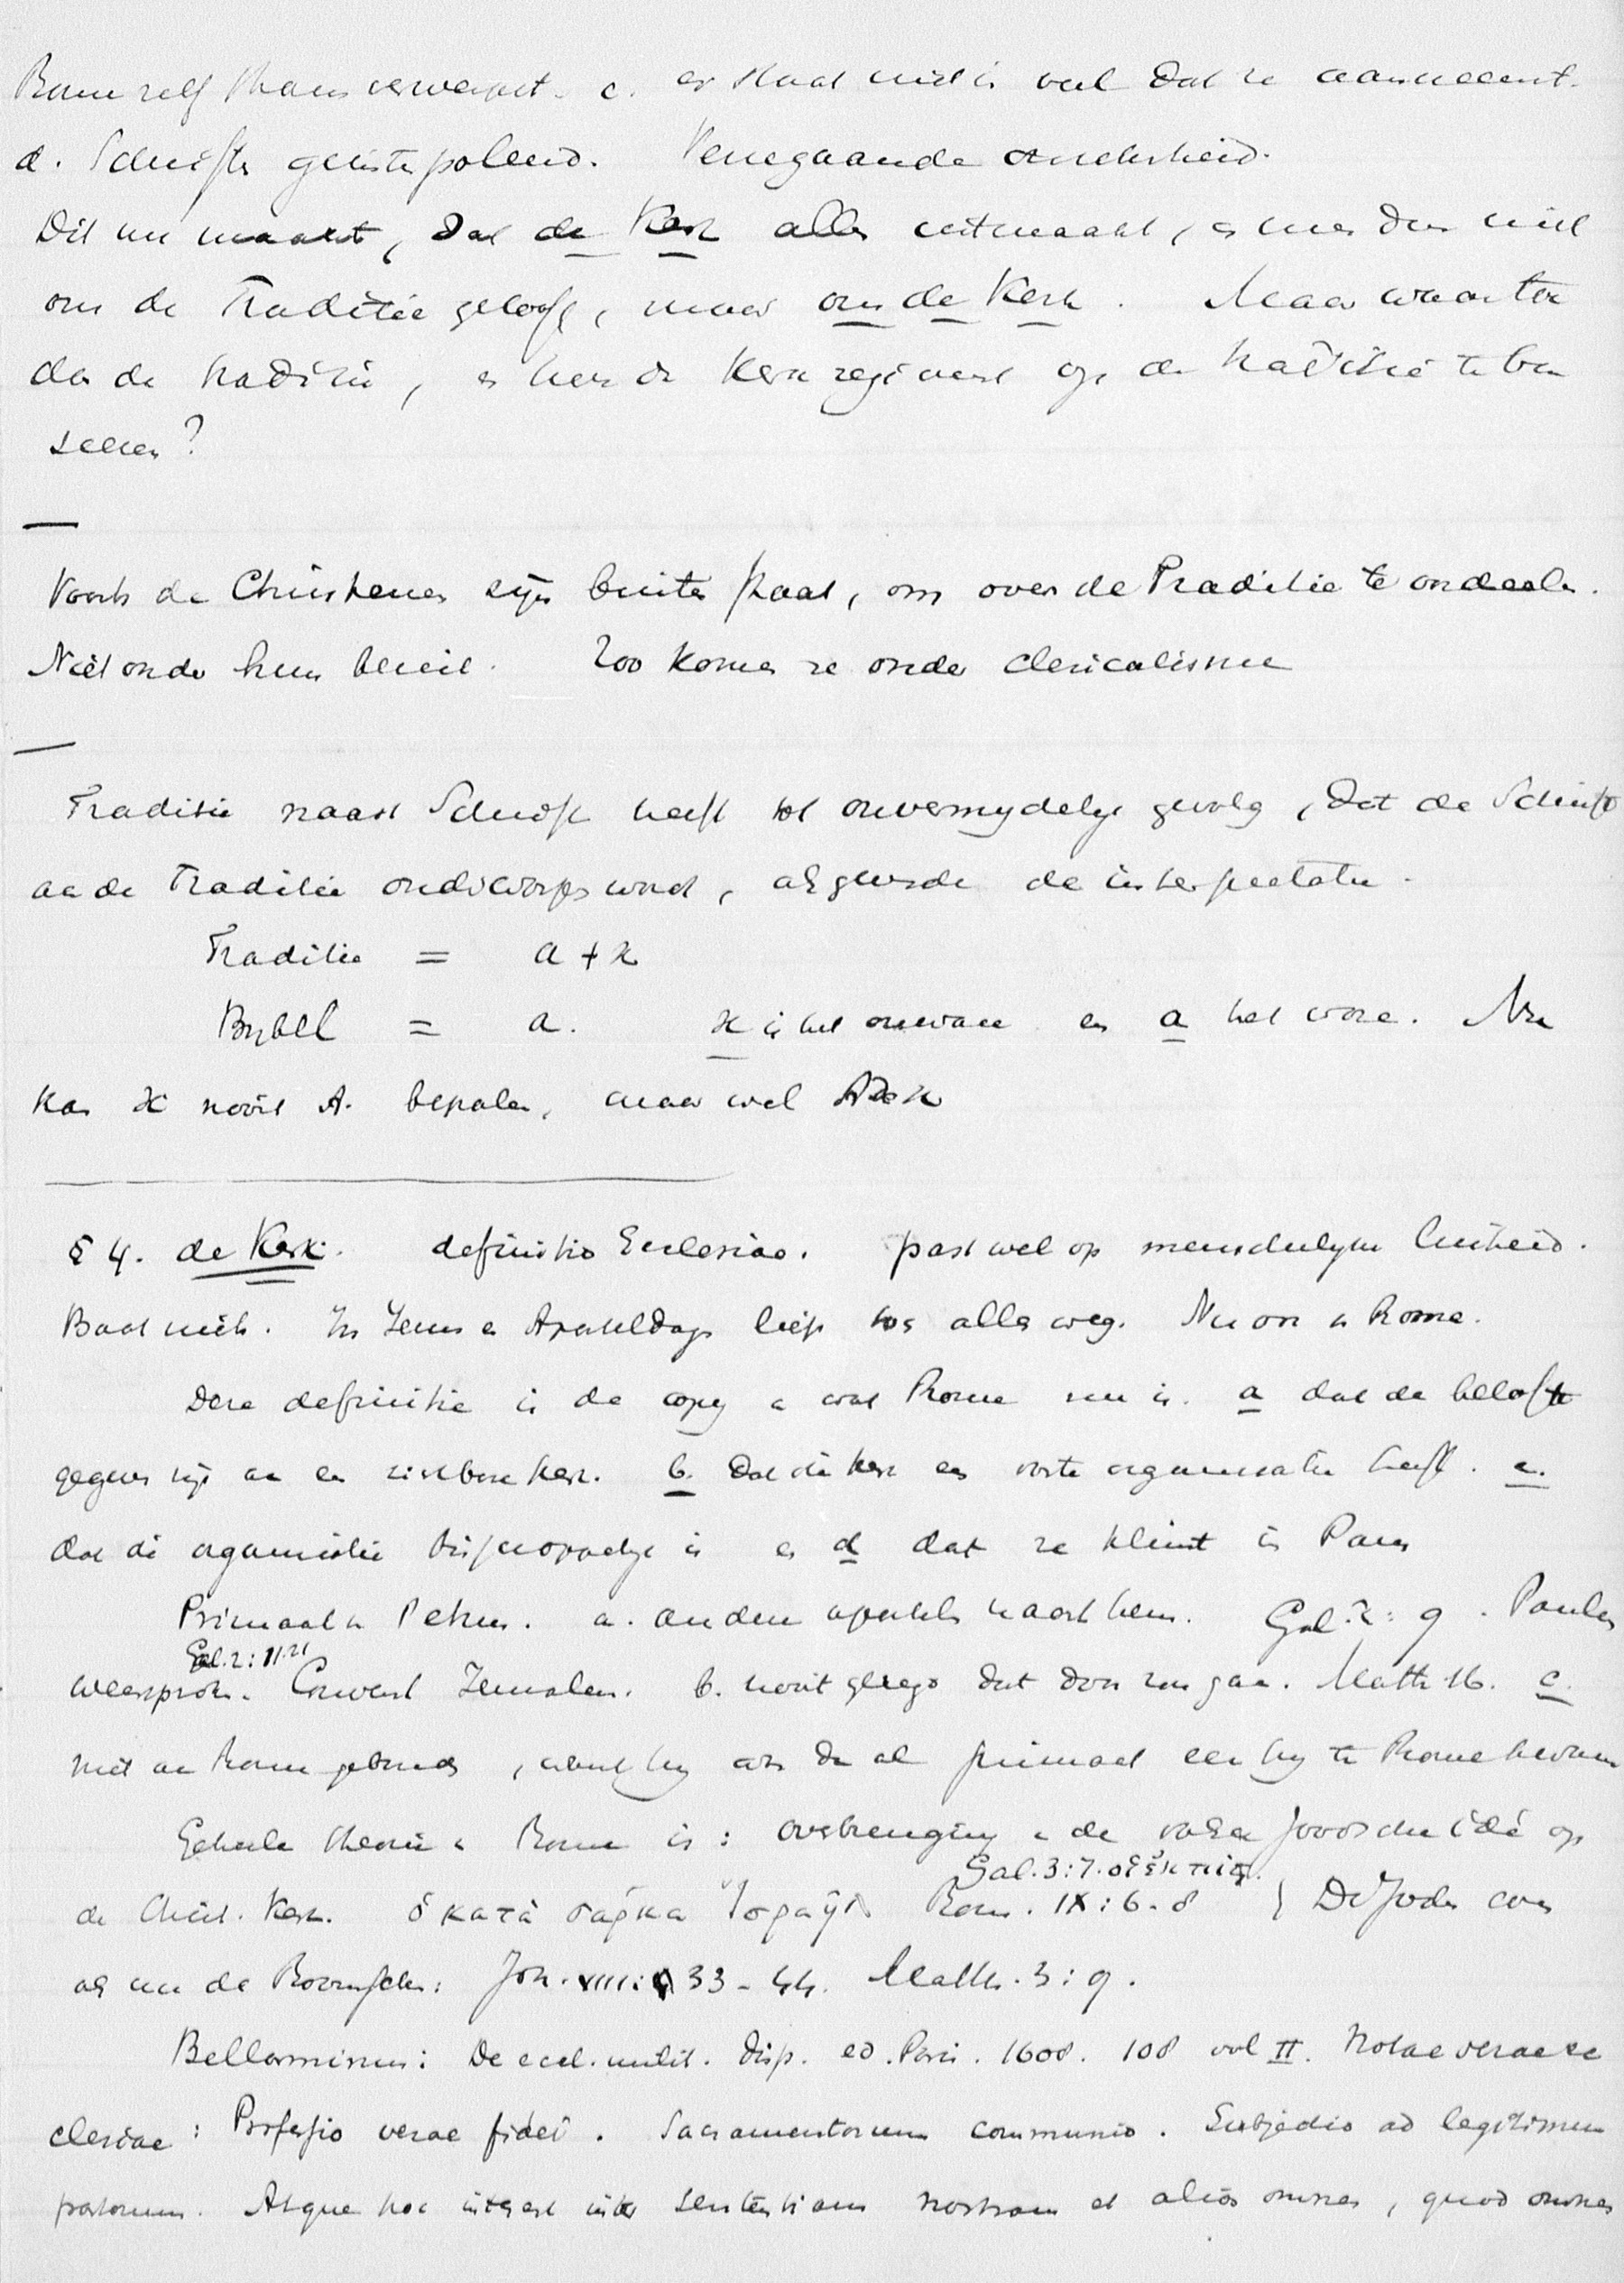 Rome zelf thans verwerpt. c. er staat niet in veel dat ze aanneemt.
d. Schriften geinterpoleerd. Penegaande onderheid.
Dit nu maakt, dat de Kerk alles uitmaakt, en men dus niet
om de Traditie gelooft, maar om de Kerk. Maar waartoe
dan de traditie, en hoe de Kerk zegt eerst op de traditie te
?
Voorts de Christenen zijn buiten staat, om over de Traditie te oordeelen.
Niet onder hun bereik. Zoo komen ze onder clericalisme
Traditie naast Schrift heeft tot onvermydelyk gevolg, dat de Schrift
aan de Traditie onderworpen wordt, als zynde de interpretatie.
Traditie = a + x
Bybel = a. x is het onware en a het ware. Nu
kan x nooit A. bepalen, maar wel A x
§ 4. de Kerk. definitio Ecclesiae. past wel op menschelyke eenheid.
Baat niets. In Jezus en Aposteldagen liep alles weg. Nu om Rome.
Deze definitie is de copy v wat Rome nu is. a dat de belofte
gegeven zijn aan een zichtbare kerk. b. Dat die kerk een vaste organisatie heeft. c.
dat die organisatie bisschoppelyk is en d dat ze klimt in Paus
Primaat v Petrus. a. andere apostels naast hem. Gal. 2:9. Paulus
Gal. 2:11.21
weersprak. Convent Jerusalem. b. nooit gezegd dat door zou gaan. Matth 16. c.
niet aan Rome gebonden, want hy was de al primaat eer hy te Rome kwam
Geheele theorie v Rome is: overbrenging v de valsche Joodsche idé op
Gal. 3:7. οἱ ἐκ πίστ.
de Christ. Kerk. ὁ κατὰ σάρκα Ἰσραήλ Rom. IX:6-8 } De Joden waren
als nu de Roomschen: Joh. VIII: 33-44. Matth. 3:9.
Bellarminus: De eccl. milit. Disp. ed. Paris. 1608. 108 vol II. Notae verae ec
clesiae: Professio verae fidei. Sacramentorum communio. Subjectio ad legitimum
pastorem. Atque hoc interest inter sententiam nostram et alias omnes, quod omnes